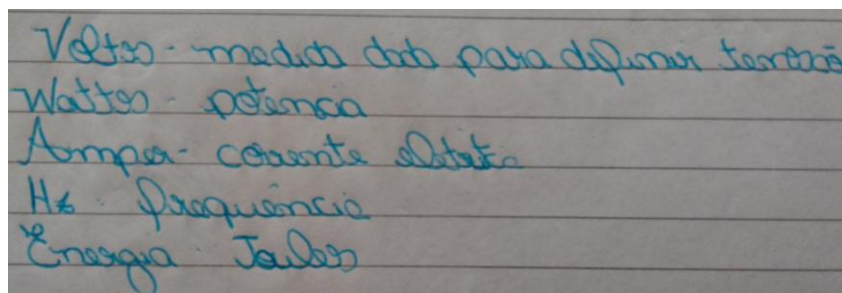 Voltos - medida dada para definir tensão
Wattos - potencia
Amper - corrente eletrica
Hz - frequência
Energia Joules